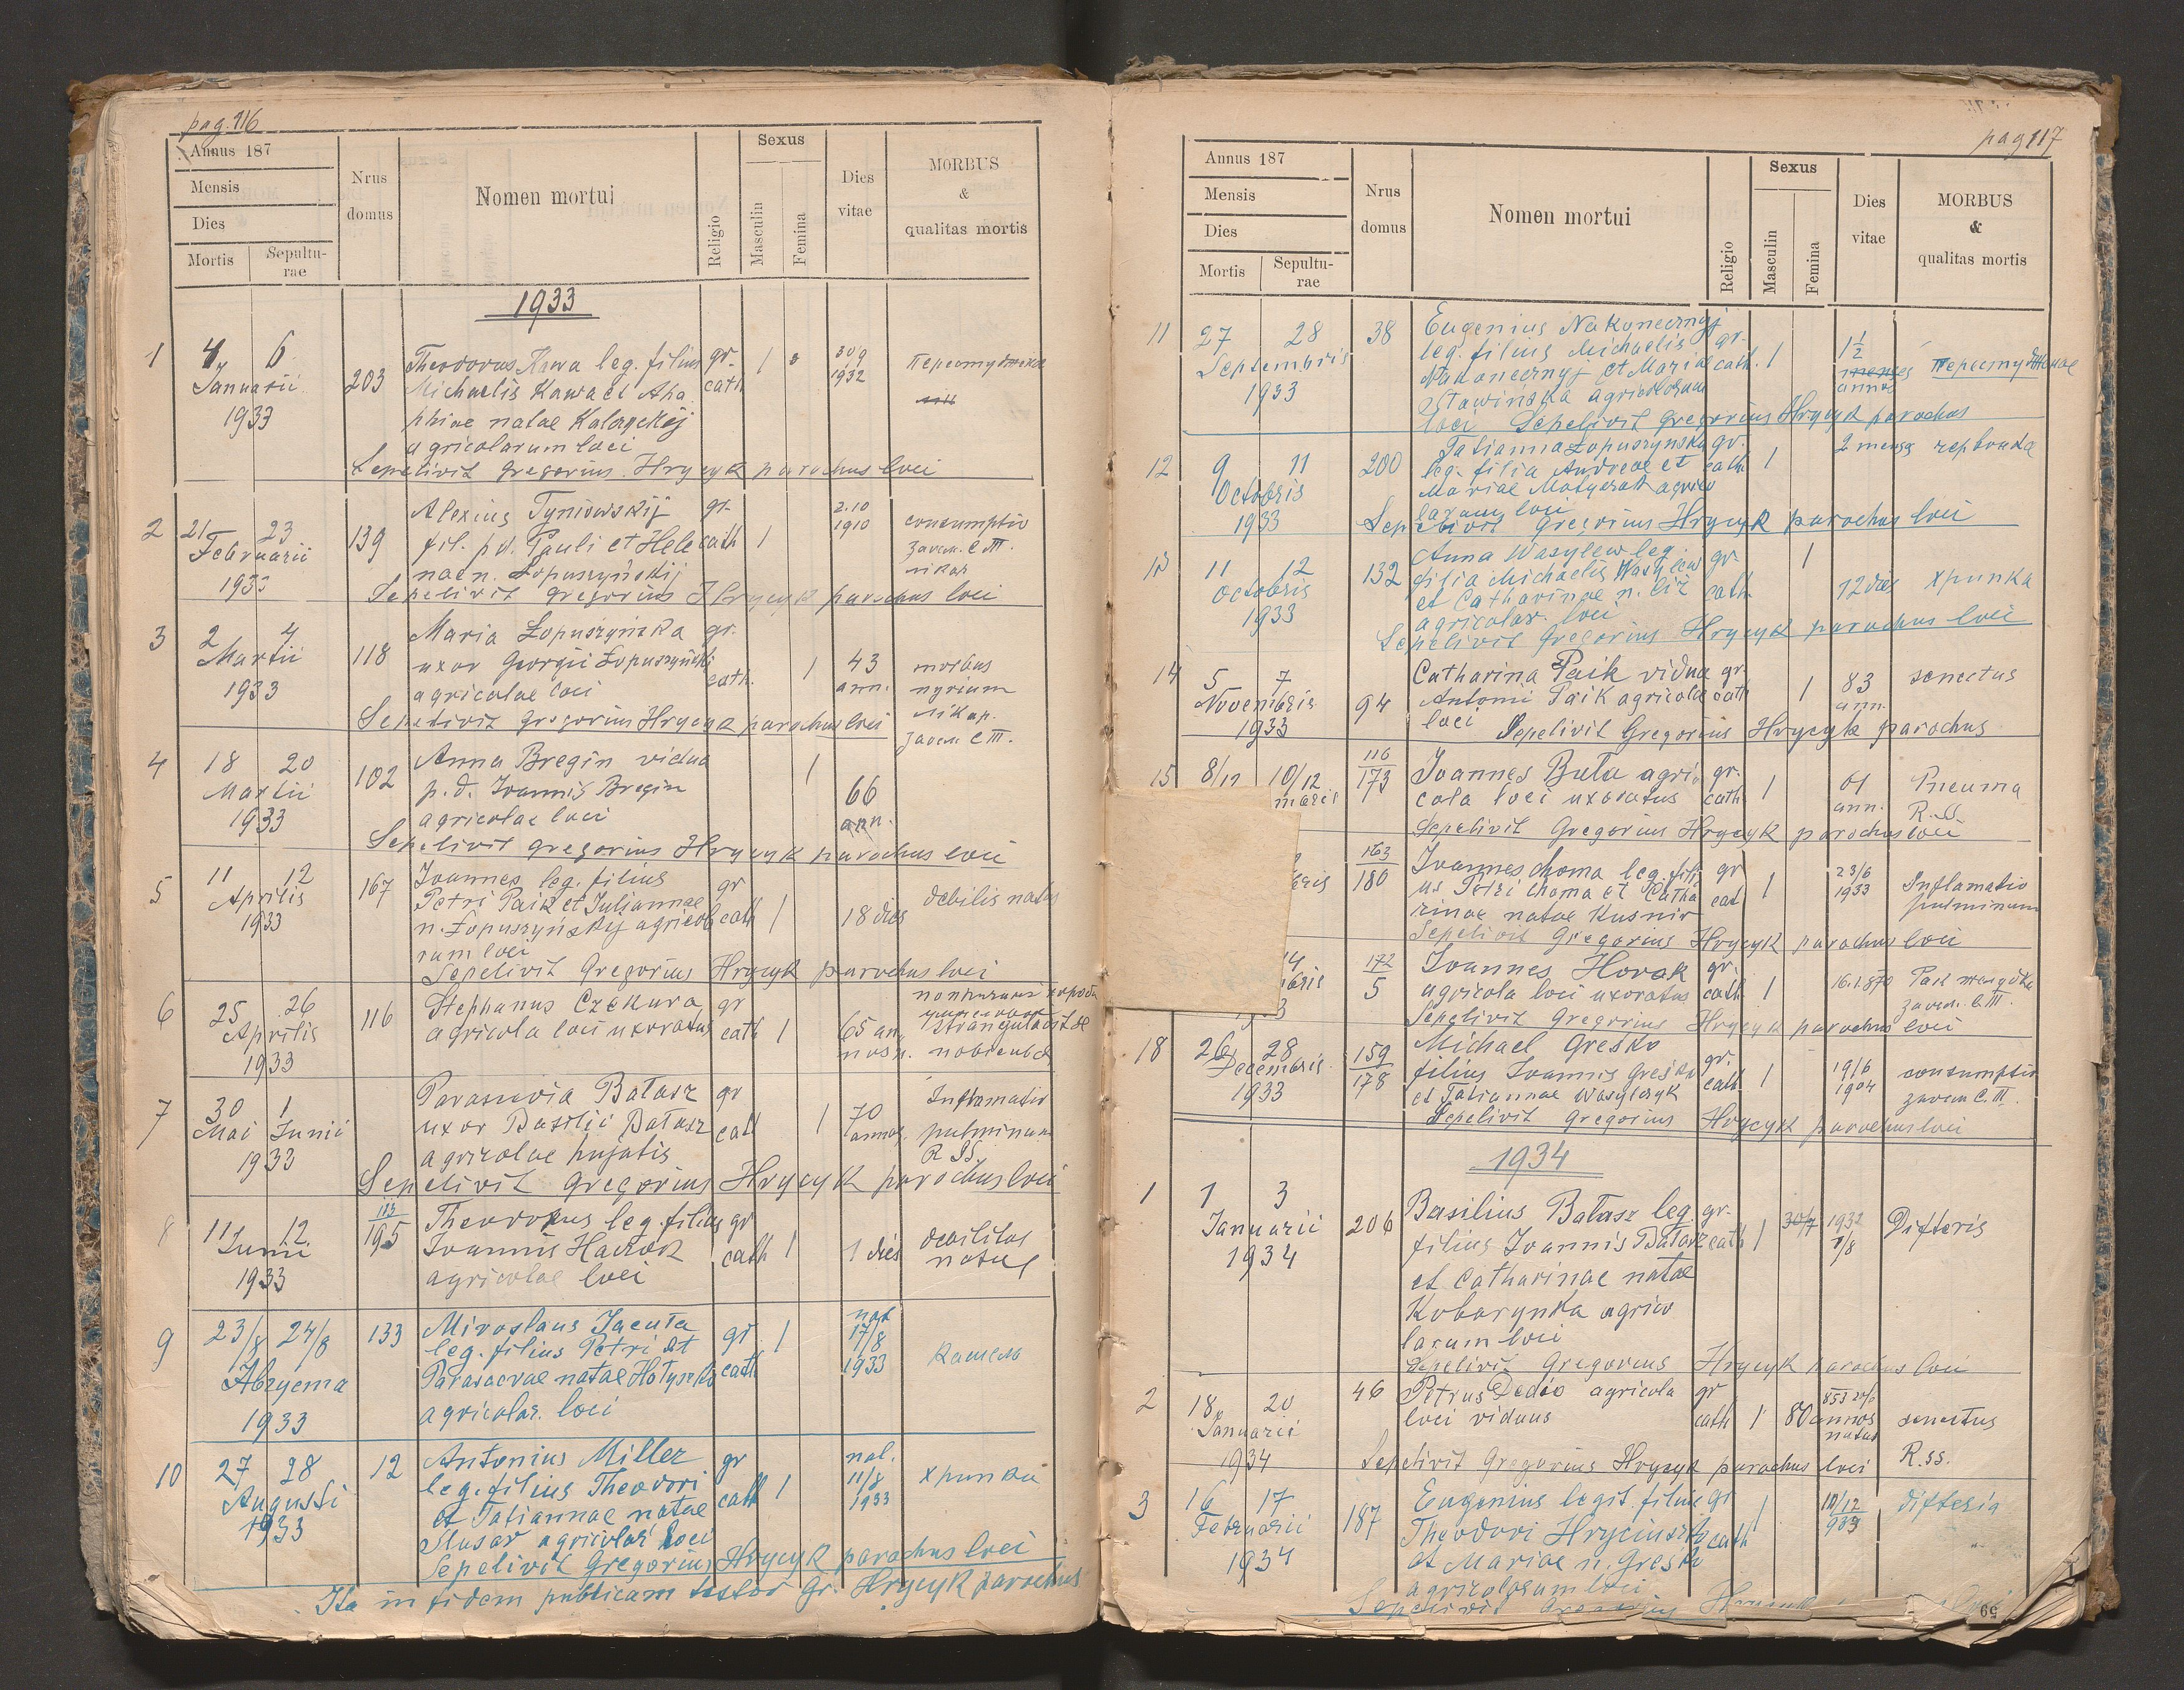 pag. 116
Annus 187
Mensis
Dies
Mortis
Sepulturae
Nrus domus
Nomen mortui
Religio
Sexus
Masculin
Femina
Dies vitae
MORBUS & qualitas mortis
1933
1 4 6 203 Theodorus Kawa leg. filius gr. 1 30/9
Januarii Michaelis Kawa et Aha cath 1932
1933 phiae natae
agricolarum loci
Sepelivit Gregorius Hrycyk parochus loci
2 21 23 139 Alexius Tyniowskij gr. 1 2.10 consumptio
Februarii fil. p.d. Pauli et Hele cath 1910
1933 nae n. Łopuszyńskij
Sepelivit Gregorius Hrycyk parochus loci
3 2 4 118 Maria Łopuszyńska gr. 1 43 morbus
Martii uxor Georgii Łopuszyński cath. ann.
1933 agricolae loci
Sepelivit Gregorius Hrycyk parochus loci
4 18 20 102 Anna Bregin vidua 1 66
Martii p.d. Ioannis Bregin ann.
1933 agricolae loci
Sepelivit Gregorius Hrycyk parochus loci
5 11 12 167 Ioannes leg. filius gr 1 18 dies debilis natus
Aprilis Petri Paik et Juliannae cath
1933 n. Łopuszyńskij agricola
rum loci
Sepelivit Gregorius Hrycyk parochus loci
6 25 26 116 Stephanus Czekura gr 1 65 an
Aprilis agricola loci uxoratus cath nos n.
1933
7 30 1 Parascevia Batasz gr 1 70 Inflamatio
Mai Junii uxor Basilii Batasz cath annos pulminum
1933 agricolae hujatis R SS.
Sepelivit Gregorius Hrycyk parochus loci
8 11 12 183/195 Theodorus leg. filius gr 1 1 dies debilitas
Junii Ioannis Haczok cath natus
1933 agricolae loci
9 23/8 24/8 133 Miroslaus Jacuta gr 1 nat
leg. filius Petri et cath 17/8
Parascevae natae 1933 кашель
1933 agricolar. loci
10 27 28 12 Antonius Miller gr 1 nat. хрипка
Augusti leg. filius Theodori cath 11/8
1933 et Tatiannae natae 1933
Slusar agricolar loci
Sepelivit Gregorius Hrycyk parochus loci
Ita in fidem publicam testor Gr. Hrycyk parochus
pag 117
Annus 187
Mensis
Dies
Mortis
Sepulturae
Nrus domus
Nomen mortui
Religio
Sexus
Masculin
Femina
Dies vitae
MORBUS & qualitas mortis
11 27 28 38 Eugenius Nakonecznyj gr. 1 1½
Septembris leg. filius Michaelis cath.
1933 Nakonecznyj et Maria annos
agricolarum
loci Sepelivit Gregorius Hrycyk parochus
12 9 11 200 Tatianna Łopuszynska gr. 1 2 menses
Octobris leg. filia Andreae et cath
1933 Mariae agrico
larum loci
Sepelivit Gregorius Hrycyk parochus loci
13 11 12 132 Anna Wasylew leg. gr. 1 12 dies хрипка
Octobris filia Michaelis Wasylew cath.
1933 et Catharinae n.
agricolar. loci
Sepelivit Gregorius Hrycyk parochus loci
14 5 7 94 Catharina Paik vidua gr. 1 83 senectus
Novembris Antonii Paik agricolae cath ann.
1933 loci Sepelivit Gregorius Hrycyk parochus
15 8/12 10/12 116/173 Ioannes Buta agri gr. 1 61 Pneuma
cola loci uxoratus cath ann. R.SS.
Sepelivit Gregorius Hrycyk parochus loci
163/180 Ioannes Choma leg. fili gr 1 23/6 Inflamatio
us Petri Choma et Catha cat 1933 pulminum
rinae natae Kusnir
Sepelivit Gregorius Hrycyk parochus loci
172/5 Ioannes Horak gr. 1 16.1.870
agricola loci uxoratus cath
Sepelivit Gregorius Hrycyk parochus loci
18 26 28 159/178 Michael Gresko gr. 1 19/6 consumptio
Decembris filius Ioannis Gresko cath 1904
1933 et Tatiannae Wasylczyk
Sepelivit Gregorius Hrycyk parochus loci
1934
1 1 3 206 Basilius Batasz leg. gr. 1 1932 Difteris
Januarii filius Ioannis Batasz cath 1/8
1934 et Catharinae natae
Kobarynka agrico
larum loci
Sepelivit Gregorius Hrycyk parochus loci
2 18 20 46 Petrus Dedio agricola gr 1 80 annos senectus
Januarii loci viduus cath natus
1934 Sepelivit Gregorius Hrycyk parochus loci R.ss.
3 16 17 187 Eugenius legit. filius gr 1 10/12 difteria
Februarii Theodori cath 933
1934 et Mariae n. Gresko
agricolarum loci
Sepelivit